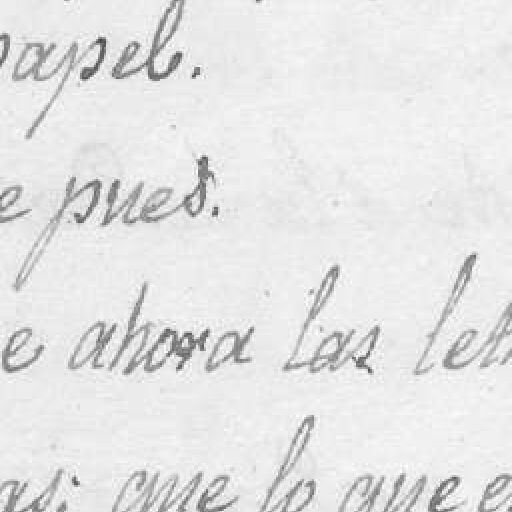 papel.
e pues.
e ahora las let
as; que lo que e